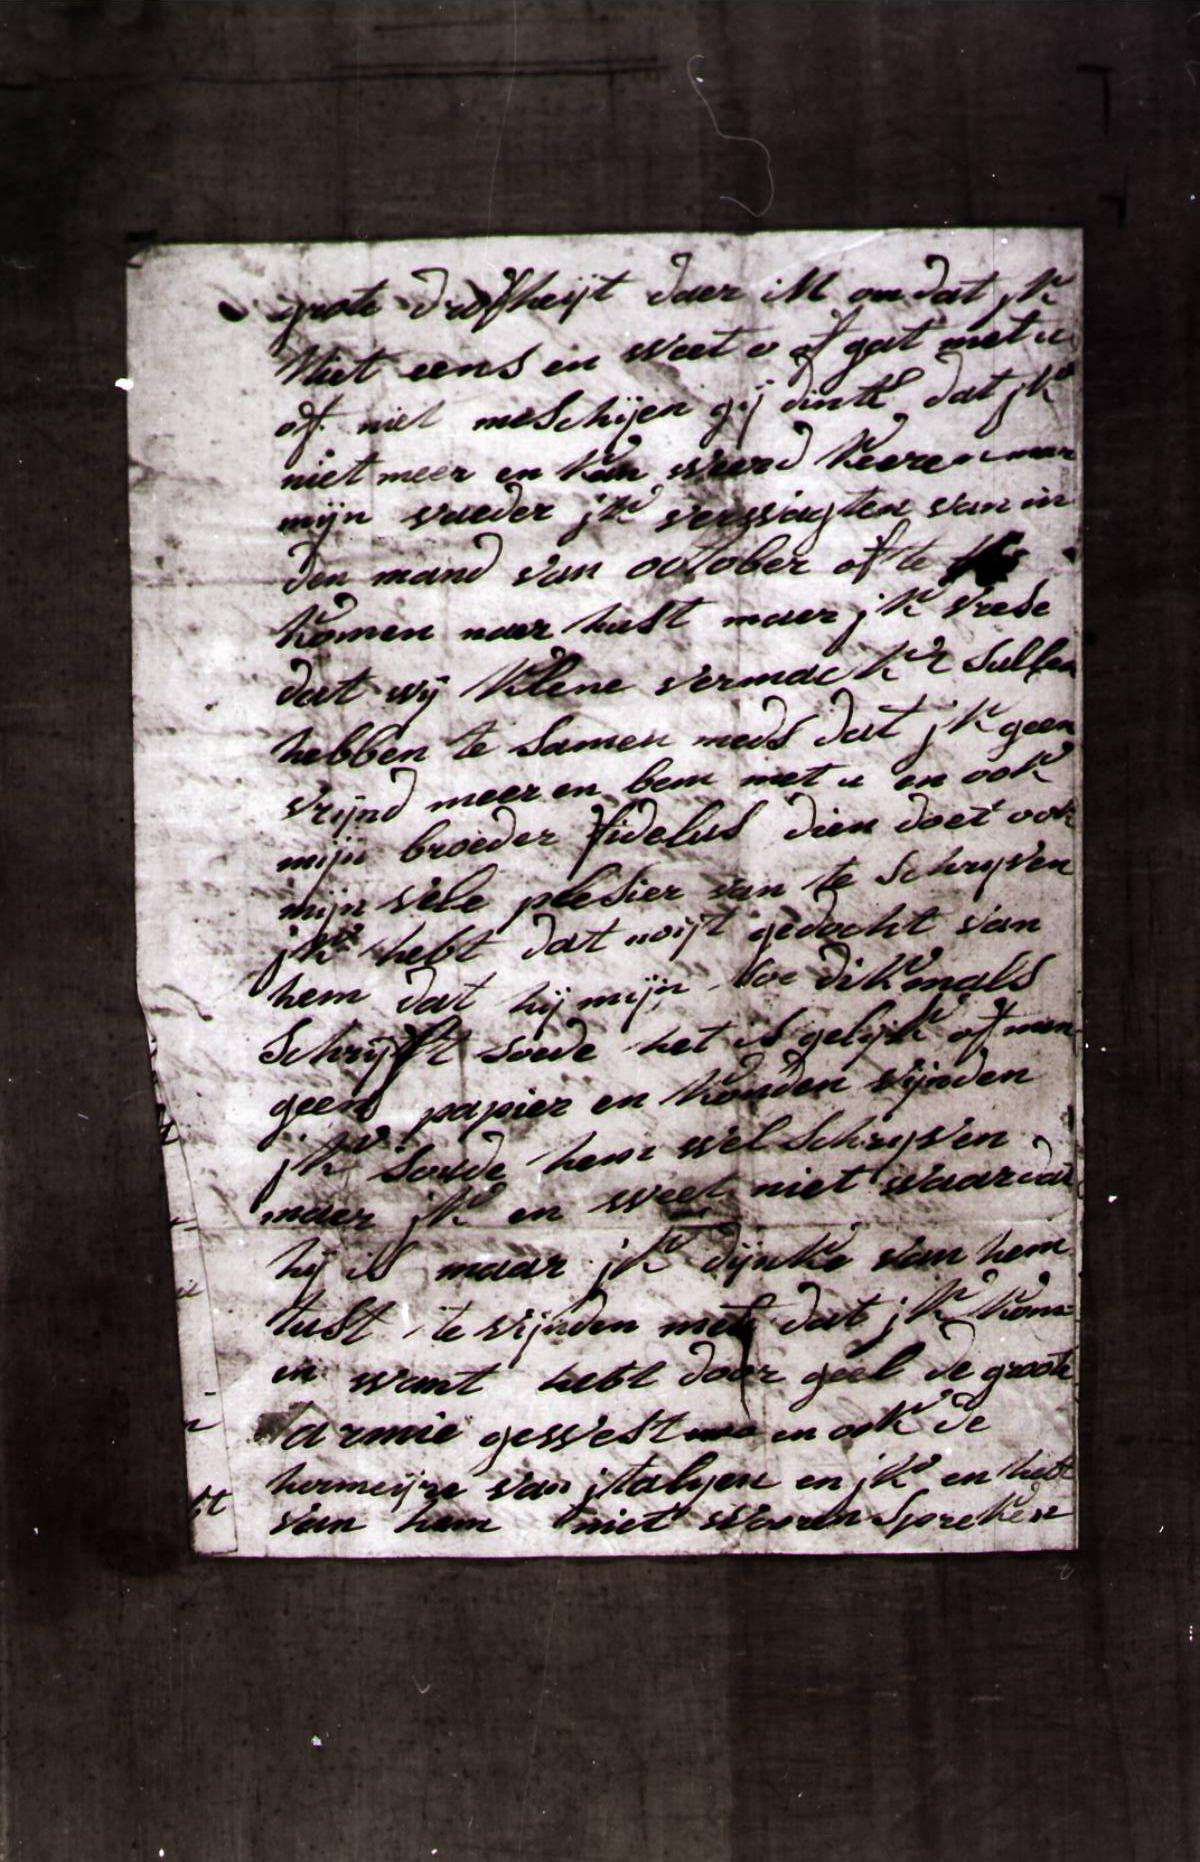 grote drofheijt daer iM om dat jk
Niet eens en weet o of gat met u
of niet meschijen gij dinkt dat jk
niet meer en kan weerd keeren maer
mijn vaeder jk verwagten van in
den mand van october of te
komen naer hust maer jk vrese
dat wij klene vermack sullen
hebben te samen meds dat jk geen
vrijnd meer en ben met u en ook
mijn broeder fidelus dien doet ook
mijn vele plesier van te schrijven
jk hebt dat noijt gedocht van
hem dat hij mijn soe dikmals
Schrijft soude het is gelijk of men
geen papier en konden vijnden
jk soude hem wel schrijven
maer jk en weet niet waar dat
hij is maar jk dijnke van hem
tust te vijnden met dat jk kom
in want hebt door geel de groote
armie gewest en ook de
hermeijre van jtalijen en jk en hebt
van hem niet wooren spreken